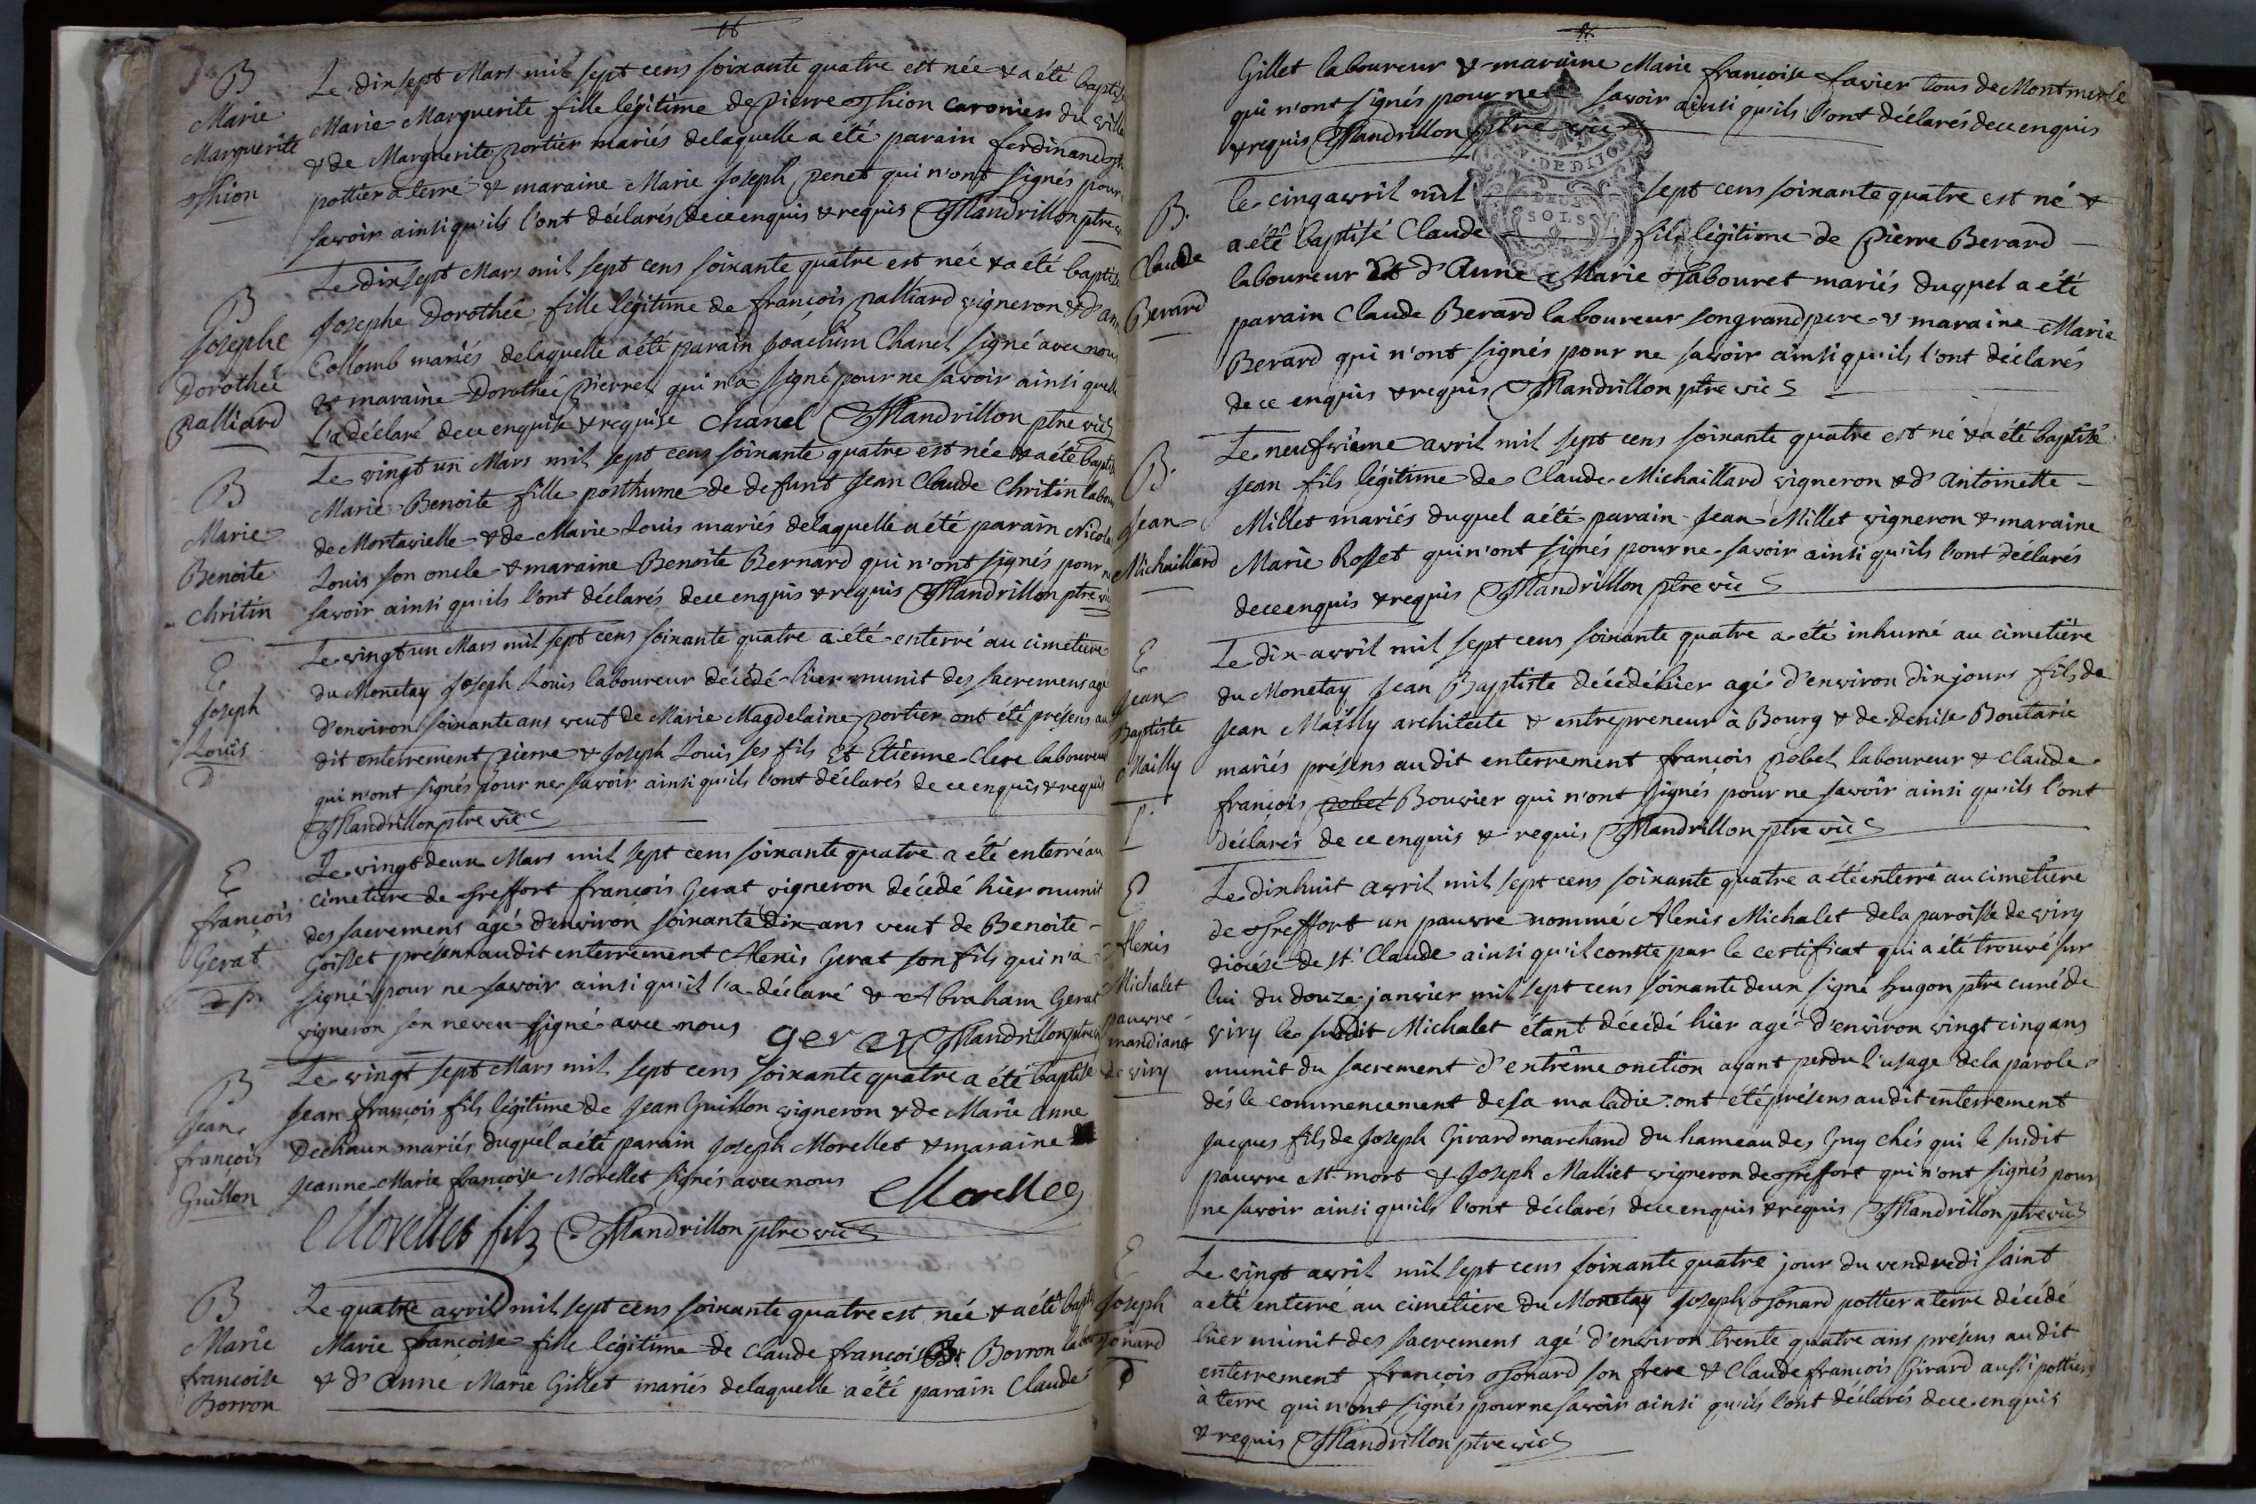 B
Marie
Marguerite
Thion
Le dix sept Mars mil sept cens soixante quatre est née & a été baptisé
Marie Marguerite fille légitime de pierre Thion caronier du ville
& de Marguerite portier mariés de laquelle a été parain ferdinand
pottier a terre & maraine Marie Joseph penet qui n'ont signés pour
savoir ainsi qu'ils l'ont déclarés de ce enquis & requis Mandrillon ptre
B
Josephe
Dorothée
palliard
Le dix sept Mars mil sept cens soixante quatre est née & a été baptisé
Josephe Dorothée fille légitime de françois palliard vigneron & d'an
Collomb mariés de laquelle a été parain Joachim Chanel signé avec nous
& maraine Dorothée pierrel qui n'a signé pour ne savoir ainsi quelle
l'a déclaré de ce enquise & requise chanel Mandrillon ptre vic
B
Marie
Benoite
christin
Le vingt un Mars mil sept cens soixante quatre est née & a été baptis
Marie Benoite fille posthume de defunt Jean Claude Chritin labou
de Mortavielle & de Marie Louis mariés de laquelle a été parain Nicolas
Louis son oncle & maraine Benoite Bernard qui n'ont signés pour ne
savoir ainsi qu'ils l'ont déclarés de ce enquis & requis Mandrillon ptre vic
E
Joseph
Louis
Le vingt un Mars mil sept cens soixante quatre a été enterré au cimetiere
du Monetay Joseph Louis laboureur décédé hier munit des sacremens agé
d'environ soixante ans veuf de Marie Magdelaine portier ont été présens au
dit enterrement pierre & Joseph Louis ses fils Et Etienne Clerc laboureur
qui n'ont signés pour ne savoir ainsi qu'ils l'ont déclarés de ce enquis & requis
Mandrillon ptre vic
E
françois
Gerat
Le vingt deux Mars mil sept cens soixante quatre a été enterré au
cimetiere de Treffort françois Gerat vigneron décédé hier munit
des sacremens agé d'environ soixante dix ans veuf de Benoite
Goisset présens audit enterrement Alexis Gerat son fils qui n'a
signé pour ne savoir ainsi qu'il l'a déclaré & Abraham Gerat
vigneron son neveu signé avec nous gerat Mandrillon ptre
B
Jean
françois
Guillon
Le vingt sept Mars mil sept cens soixante quatre a été baptisé
Jean françois fils légitime de Jean Guillon vigneron & de Marie anne
Dechaux mariés duquel a été parain Joseph Morellet & maraine
Jeanne Marie françoise Morellet signés avec nous Morellet
Morellet fils Mandrillon ptre vic
B
Marie
francoise
Borron
Le quatre avril mil sept cens soixante quatre est née & a été bapti
Marie françoise fille légitime de claude françois Borron labo
& d'anne Marie Gillet mariés de laquelle a été parain Claude
Gillet laboureur & maraine Marie françoise favier tous de Montmerle
qui n'ont signés pour ne savoir ainsi qu'ils l'ont déclarés de ce enquis
& requis Mandrillon ptre vic
V. DE DIJON
DEUX
SOLS
B.
Claude
Berard
Le cinq avril mil sept cens soixante quatre est né &
a été baptisé Claude fils légitime de pierre Berard
laboureur Et d'Anne Marie Tabouret mariés duquel a été
parain Claude Berard laboureur son grand pere & maraine Marie
Berard qui n'ont signés pour ne savoir ainsi qu'ils l'ont déclarés
de ce enquis & requis Mandrillon ptre vic
B.
Jean
Michaillard
Le neufvième avril mil sept cens soixante quatre est né & a été baptisé
Jean fils légitime de Claude Michaillard vigneron & d'antoinette
Millet mariés duquel a été parain Jean Millet vigneron & maraine
Marie Rosset qui n'ont signés pour ne savoir ainsi qu'ils l'ont déclarés
de ce enquis & requis Mandrillon ptre vic
E
Jean
Baptiste
Mailly
Le dix avril mil sept cens soixante quatre a été inhumé au cimetière
du Monetay Jean Baptiste décédé hier agé d'environ dix jours fils de
Jean Mailly architecte & entrepreneur à Bourg & de denise Boutarie
mariés présens au dit enterrement françois pobel laboureur & claude
françois pobel Bouvier qui n'ont signés pour ne savoir ainsi qu'ils l'ont
déclarés de ce enquis & requis Mandrillon ptre vic
E
Alexis
Michalet
pauvre
mandiant
de viry
Le dix huit avril mil sept cens soixante quatre a été enterré au cimetiere
de Treffort un pauvre nommé Alexis Michalet de la paroisse de viry
diocése de St. Claude ainsi qu'il conste par le certificat qui a été trouvé sur
lui du douze janvier mil sept cens soixante deux signé hugon ptre curé de
viry le susdit Michalet étant décédé hier agé d'environ vingt cinq ans
munit du sacrement d'extrême onction ayant perdu l'usage de la parole
dés le commencement de sa maladie: ont été présens audit enterrement
Jacques fils de Joseph Girard marchand du hameau des Guy chés qui le susdit
pauvre est mort & Joseph Malliet vigneron de Treffort qui n'ont signés pour
ne savoir ainsi qu'ils l'ont déclarés de ce enquis & requis Mandrillon ptre vic
E
Joseph
Jonard
Le vingt avril mil sept cens soixante quatre jour du vendredi saint
a été enterré au cimetiere du Monetay Joseph Jonard pottier a terre décédé
hier munit des sacremens agé d'environ trente quatre ans présens au dit
enterrement françois Jonard son frere & Claude françois Girard aussi pottier
à terre qui n'ont signés pour ne savoir ainsi qu'ils l'ont déclarés de ce enquis
& requis Mandrillon ptre vic